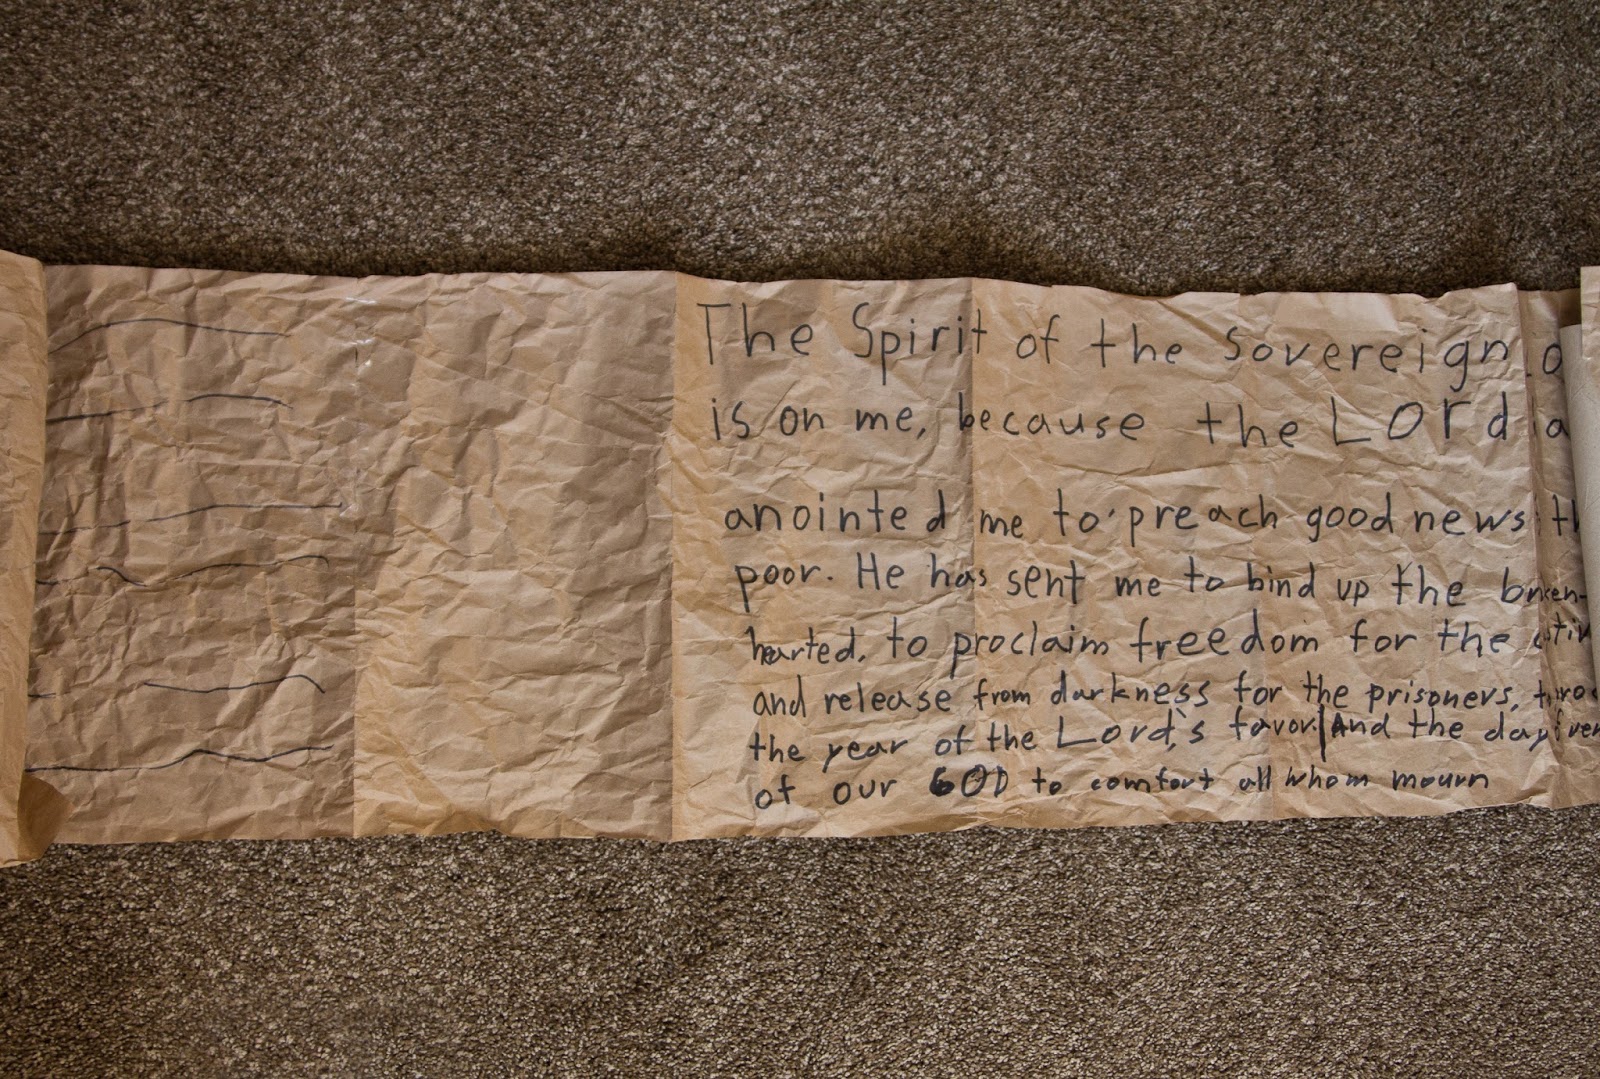 The Spirit of the Sovereign
is on me, because the LOrd
anointed me to preach good news
poor. He has sent me to bind up the broken-
hearted, to proclaim freedom for the
and release from darkness for the prisoners,
the year of the Lord's favor. And the day
of our GOD to comfort all whom mourn